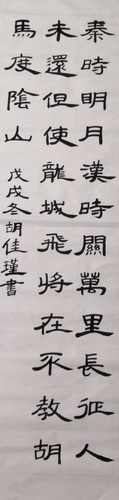 秦時明月漢時關萬里長征人
未還但使龍城飛將在不教胡
馬度陰山
戊戌冬胡佳瑾書